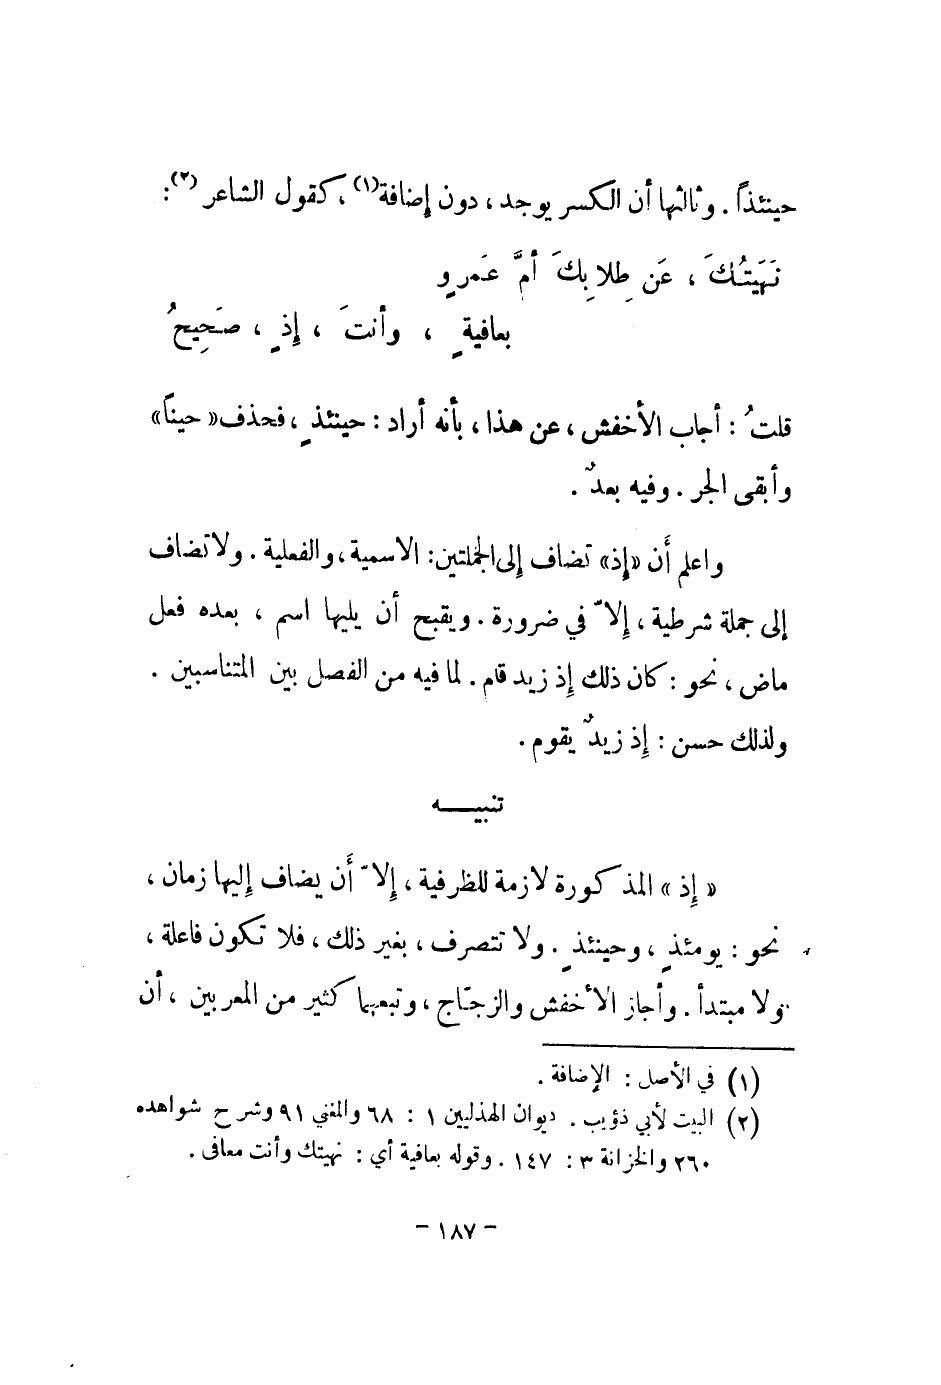 حينئذاً . وثالثها أن الكسر يوجد ، دون إضافة(١) ، كقول الشاعر (٢):
نَهَيتُكَ ، عَن طِلابِكَ أمَّ عَمرٍو
بعافيةٍ ، وأنتَ ، إذٍ ، صَحِيحُ
قلتُ : أجاب الأخفش ، عن هذا ، بأنه أراد : حينئذٍ ، فحذف «حيناً»
وأبقى الجر . وفيه بعدٌ .
واعلم أن «إذ» تضاف إلى الجملتين: الاسمية ، والفعلية . ولا تضاف
إلى جملة شرطية ، إلاّ في ضرورة . ويقبح أن يليها اسم ، بعده فعل
ماض ، نحو : كان ذلك إذ زيد قام . لما فيه من الفصل بين المتناسبين .
ولذلك حسن : إذ زيدٌ يقوم .
تنبيـــه
« إذ » المذكورة لازمة للظرفية ، إلاّ أن يضاف إليها زمان ،
نحو : يومئذٍ ، وحينئذٍ . ولا تتصرف ، بغير ذلك ، فلا تكون فاعلة ،
ولا مبتدأ . وأجاز الأخفش والزجّاج ، وتبعهما كثير من المعربين ، أن
(١) في الأصل : الإضافة .
(٢) البيت لأبي ذؤيب . ديوان الهذليين ١ : ٦٨ والمغني ٩١ وشرح شواهده
٢٦٠ والخزانة ٣ : ١٤٧ . وقوله بعافية أي : نهيتك وأنت معافى .
- ١٨٧ -